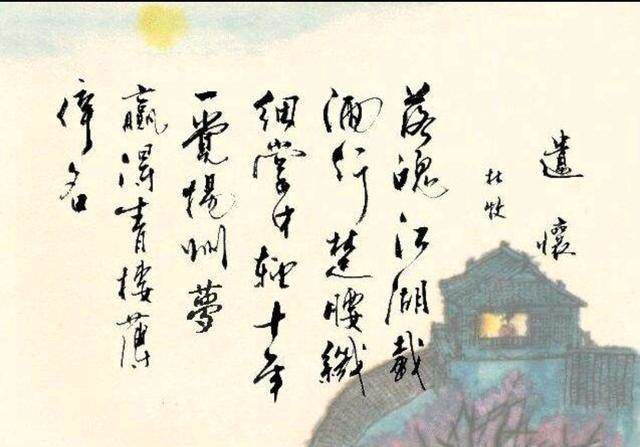 遣懷
杜牧
落魄江湖載
酒行楚腰纖
細掌中輕十年
一覺揚州夢
贏得青樓薄
倖名